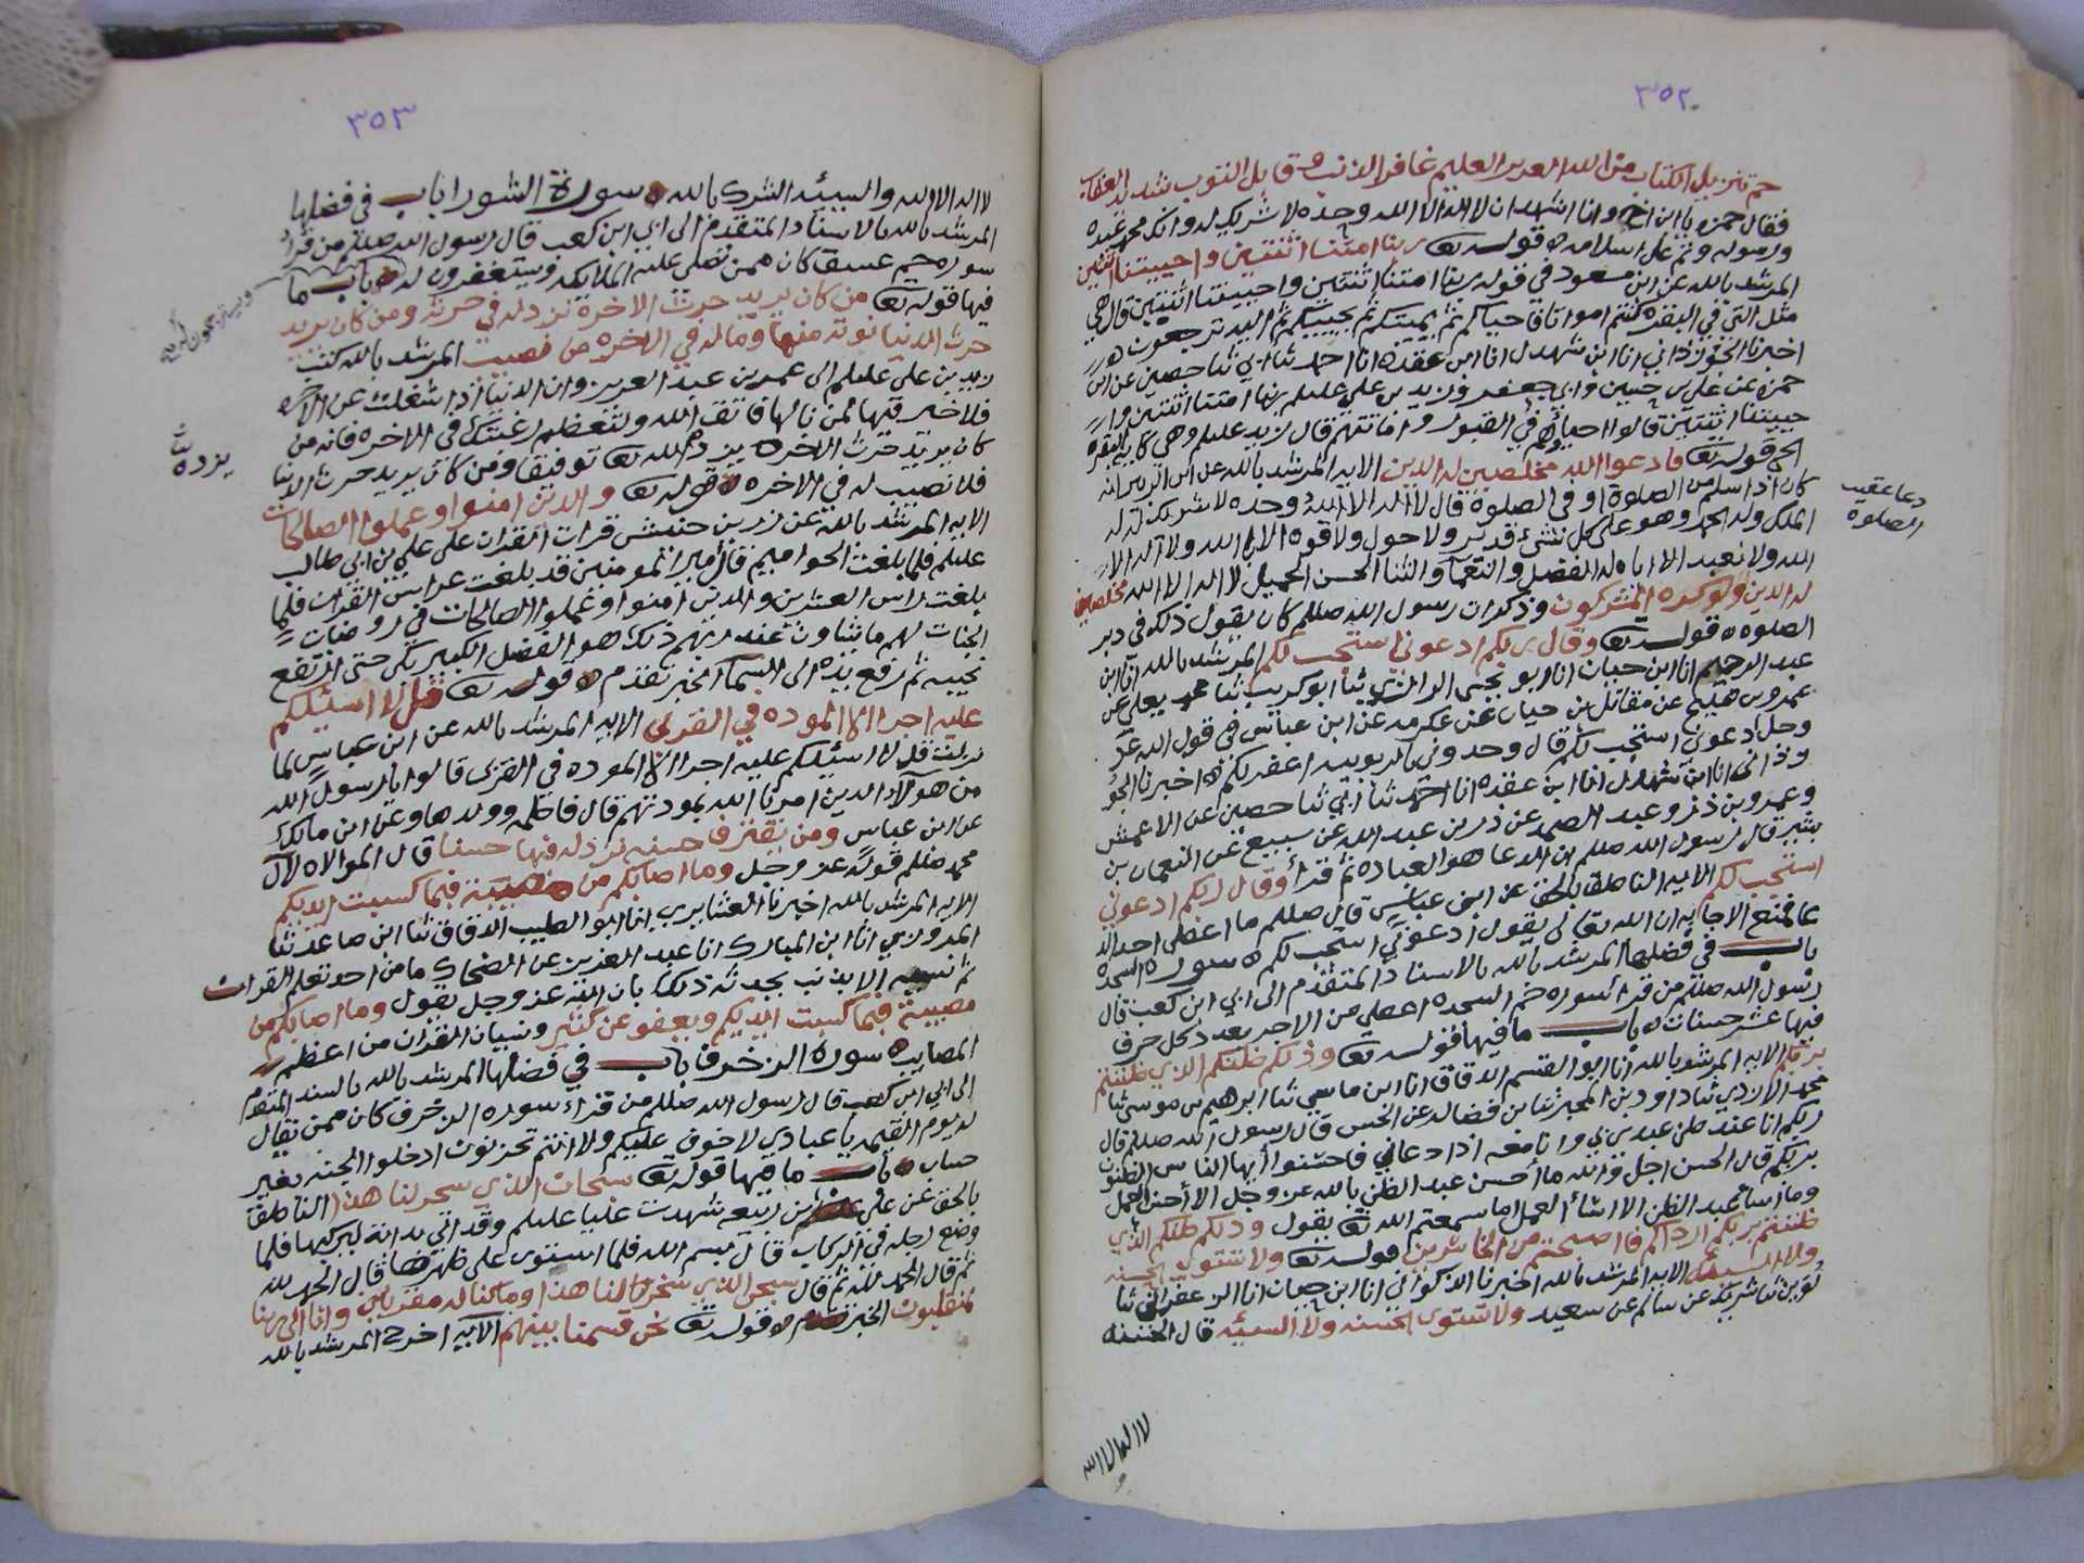 ٣٥٢
حم تنزيل الكتاب من الله العزيز العليم غافر الذنب وقابل التوب شديد العقاب
فقال حمزه يا ابن اخي وانا اشهد ان لا اله الا الله وحده لا شريك له وانك محمد عبده
ورسوله وتم على اسلامه ه قولـــه تعا ربنا امتنا اثنتين واحييتنا اثنتين
المرشد بالله عن ابن مسعود في قوله ربنا امتنا اثنتين واحييتنا اثنتين قال هي
مثل التي في البقره كنتم امواتا فاحياكم ثم يميتكم ثم يحييكم ثم اليه ترجعون ه
اخبرنا الجوزداني انا ابن شهدل انا ابن عقده انا احمد ثنا ابي ثنا حصين عن ابي
حمزه عن علي بن حسين وابي جعفر وزيد بن علي عليلم ربنا امتنا اثنتين وا
حييتنا اثنتين قالوا احياؤهم في القبور واماتتهم قال زيد عليلم وهي كآية البقره
الخبر قوله تعا فادعوا الله مخلصين له الدين الايه المرشد بالله عن ابن الزبير انه
كان اذا سلم من الصلوة او في الصلوة قال لا اله الا الله وحده لا شريك له له
الملك وله الحمد وهو على كل شئ قدير ولا حول ولا قوه الا بالله ولا اله الا
الله ولا نعبد الا اياه له الفضل والنعما والثنا الحسن الجميل لا اله الا الله مخلصين
له الدين ولو كره المشركون وذكر ان رسول الله صللم كان يقول ذلك في دبر
الصلوه ه قولـــه تعا وقال ربكم ادعوني استجب لكم المرشد بالله انا ابن
عبد الرحيم انا ابن حبان انا ابو يحيى الرازي ثنا ابو كريب ثنا محمد يعلى عن
عمر بن صبيح عن مقاتل بن حيان عن عكرمه عن ابن عباس في قول الله عز
وجل ادعوني استجب لكم قال وحدوني بالربوبيه اغفر لكم ه اخبرنا الجو
زداني انا ابن شهدل انا ابن عقده انا احمد ثنا ابي ثنا حصين عن الاعمش
وعمرو بن ذر وعبد الصمد عن ذر بن عبد الله عن سبيع عن النعمان بن
بشير قال رسول الله صللم ان الدعا هو العباده ثم قرأ وقال ربكم ادعوني
استجب لكم الايه الناطق بالحق عن ابن عباس قال صللم ما اعطى احد الد
عا فمنع الاجابه ان الله تعالى يقول ادعوني استجب لكم ه سورة السجده
باب في فضلها المرشد بالله بالاسناد المتقدم الى ابي ابن كعب قال
رسول الله صللم من قرأ سوره حم السجده اعطي من الاجر بعدد كل حرف
فيها عشر حسنات ه باب ما فيها قولـــه تعا وذلكم ظنكم الذي ظننتم
بربكم الايه المرشد بالله انا ابو القسم الدقاق انا ابن ماسي ثنا ابرهيم بن موسى ثنا
محمد الازدي ثنا داود بن المحبر ثنا بن فضاله عن الحسن قال رسول الله صللم قال
ربكم انا عند ظن عبدي بي وانا معه اذا دعاني فاحسنوا ايها الناس الظنون
بربكم قال الحسن اجل والله ما أحسن عبد الظن بالله عز وجل الا أحسن العمل
وما اساء عبد الظن الا اساء العمل اما سمعتم الله تعا يقول وذلكم ظنكم الذي
ظننتم بربكم ارداكم فاصبحتم من الخاسرين قولـــه تعا ولا تستوي الحسنه
ولا السيئه الايه المرشد بالله اخبرنا الذكواني انا ابن حبان انا ابن عفير ثنا
لوين ثنا شريك عن سالم عن سعيد ولا تستوي الحسنه ولا السيئه قال الحسنه
لا اله الا الله
دعا عقيب
الصلوة
٣٥٣
لا اله الا الله والسيئه الشرك بالله ه سورة الشورا باب في فضلها
المرشد بالله بالاسناد المتقدم الى ابي ابن كعب قال رسول الله صللم من قرأ
سوره حم عسق كان ممن تصلي عليه الملائكه ويستغفرون له ه باب ما
فيها قوله تعا من كان يريد حرث الاخرة نزد له في حرثه ومن كان يريد
حرث الدنيا نوته منها وما له في الاخره من نصيب المرشد بالله كتب
زيد بن علي عليلم الى عمر بن عبد العزيز وان الدنيا اذا شغلت عن الاخره
فلا خير فيها لمن نالها فاتق الله ولتعظم رغبتك في الاخره فانه من
كان يريد حرث الاخره يزده الله تعا توفيقا ومن كان يريد حرث الدنيا
فلا نصيب له في الاخره ه قوله تعا والذين امنوا وعملوا الصالحات
الايه المرشد بالله عن زر بن حبيش قرات القران على علي بن ابي طالب
عليلم فلما بلغت الحواميم قال امير المومنين قد بلغت عرائس القران فلما
بلغت راس العشرين والذين امنوا وعملوا الصالحات في روضات
الجنات لهم ما يشاون عند ربهم ذلك هو الفضل الكبير بكى حتى ارتفع
نحيبه ثم رفع يده الى السما الخبر تقدم ه قولـــه تعا قل لا اسئلكم
عليه اجرا الا الموده في القربى الايه المرشد بالله عن ابن عباس لما
نزلت قل لا اسئلكم عليه اجرا الا الموده في القربى قالوا يا رسول الله
من هولاء الذين امرنا الله بمودتهم قال فاطمه وولدها وعن ابن مالك
عن ابن عباس ومن يقترف حسنه نزد له فيها حسنا قال الموالاه لآل
محمد صللم قوله عز وجل وما اصابكم من مصيبة فبما كسبت ايديكم
الايه المرشد بالله اخبرنا العشايري انا ابو الطيب الدقاق ثنا ابن صاعد ثنا
المروزي انا ابن المبارك انا عبد العزيز عن الضحاك ما من احد تعلم القران
ثم نسيه الا بذنب يحدثه ذلك بان الله عز وجل يقول وما اصابكم من
مصيبة فبما كسبت ايديكم ويعفو عن كثير ونسيان القران من اعظم
المصايب ه سورة الزخرف باب في فضلها المرشد بالله بالسند المتقدم
الى ابي ابن كعب قال رسول الله صللم من قراء سوره الزخرف كان ممن يقال
له يوم القيمه يا عبادي لا خوف عليكم ولا انتم تحزنون ادخلوا الجنه بغير
حساب ه باب ما فيها قوله تعا سبحان الذي سخر لنا هذا الناطق
بالحق عن علي بن ربيعه شهدت عليا عليلم وقد اتي بدابة ليركبها فلما
وضع رجله في الركاب قال بسم الله فلما استوى على ظهرها قال الحمد لله
ثم قال الحمد لله ثم قال سبحن الذي سخر لنا هذا وما كنا له مقرنين وانا الى ربنا
لمنقلبون الخبر تقدم ه قولـــه تعا نحن قسمنا بينهم الآيه اخرج المرشد بالله
يزده